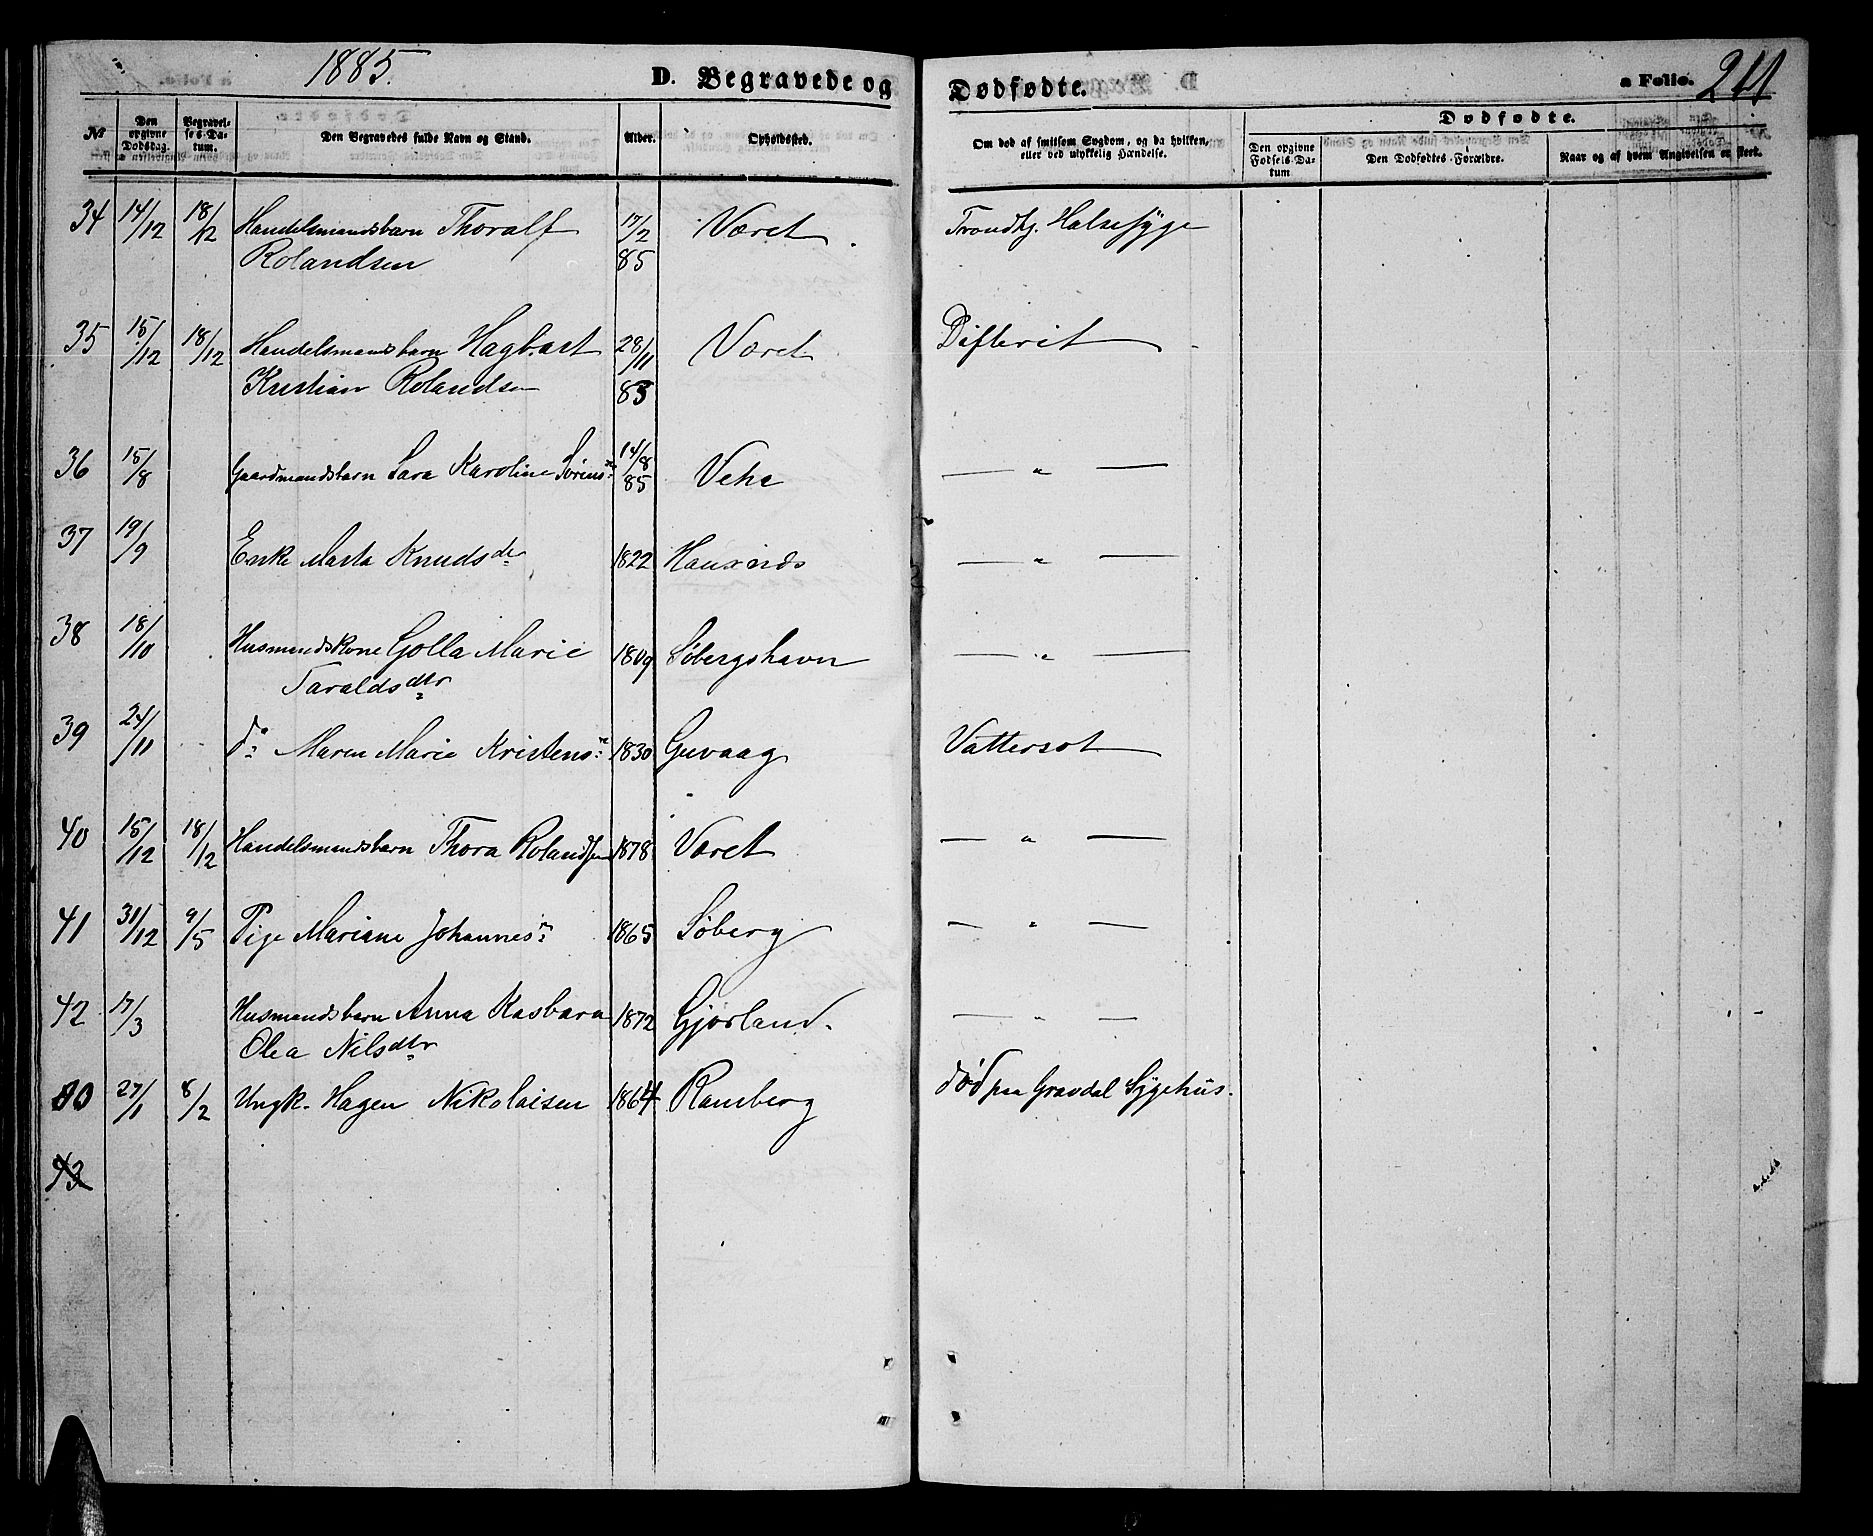 1885. D. Begravede og Dødfødte. a Folio. 211
№ Den opgivne Dødsdag. Begravelses-Datum. Den Begravedes fulde Navn og Stand. Alder. Opholdssted. Om død af smitsom Sygdom, og da hvilken, eller ved ulykkelig Hændelse. Dødfødte. Den opgivne Fødsels-Datum Den Dødfødtes Forældre. Naar og af hvem Angivelsen er skeet.
34 14/12 18/12 Handelsmandsbarn Thoralf 17/2 Været Trondhj. Halsesyge
Rolandsen 85
35 15/12 18/12 Handelsmandsbarn Hagbart 28/11 Været Difterit
Kristian Rolandsen 83
36 15/8 Gaardmandsbarn Sara Karoline Sørens 14/8 85 — " —
37 19/9 Enke Marta Knudsdr 1822 Hauxnæs — " —
38 18/10 Husmandskone Golla Marie 1809 Søbergshavn — " —
Taraldsdtr
39 24/11 do Maren Marie Kristens 1830 Guvaag Vattersot
40 15/12 18/12 Handelsmandsbarn Thora Rolandsen 1878 Været — " —
41 31/12 9/5 Pige Mariane Johannes 1865 Søberg — " —
42 17/3 Husmandsbarn Anna Kasbara 1872 Gjørland. — " —
Olea Nilsdtr
27/1 8/2 Ungk. Hagen Nikolaisen 1864 Ramberg død paa Gravdal Sygehus.
43